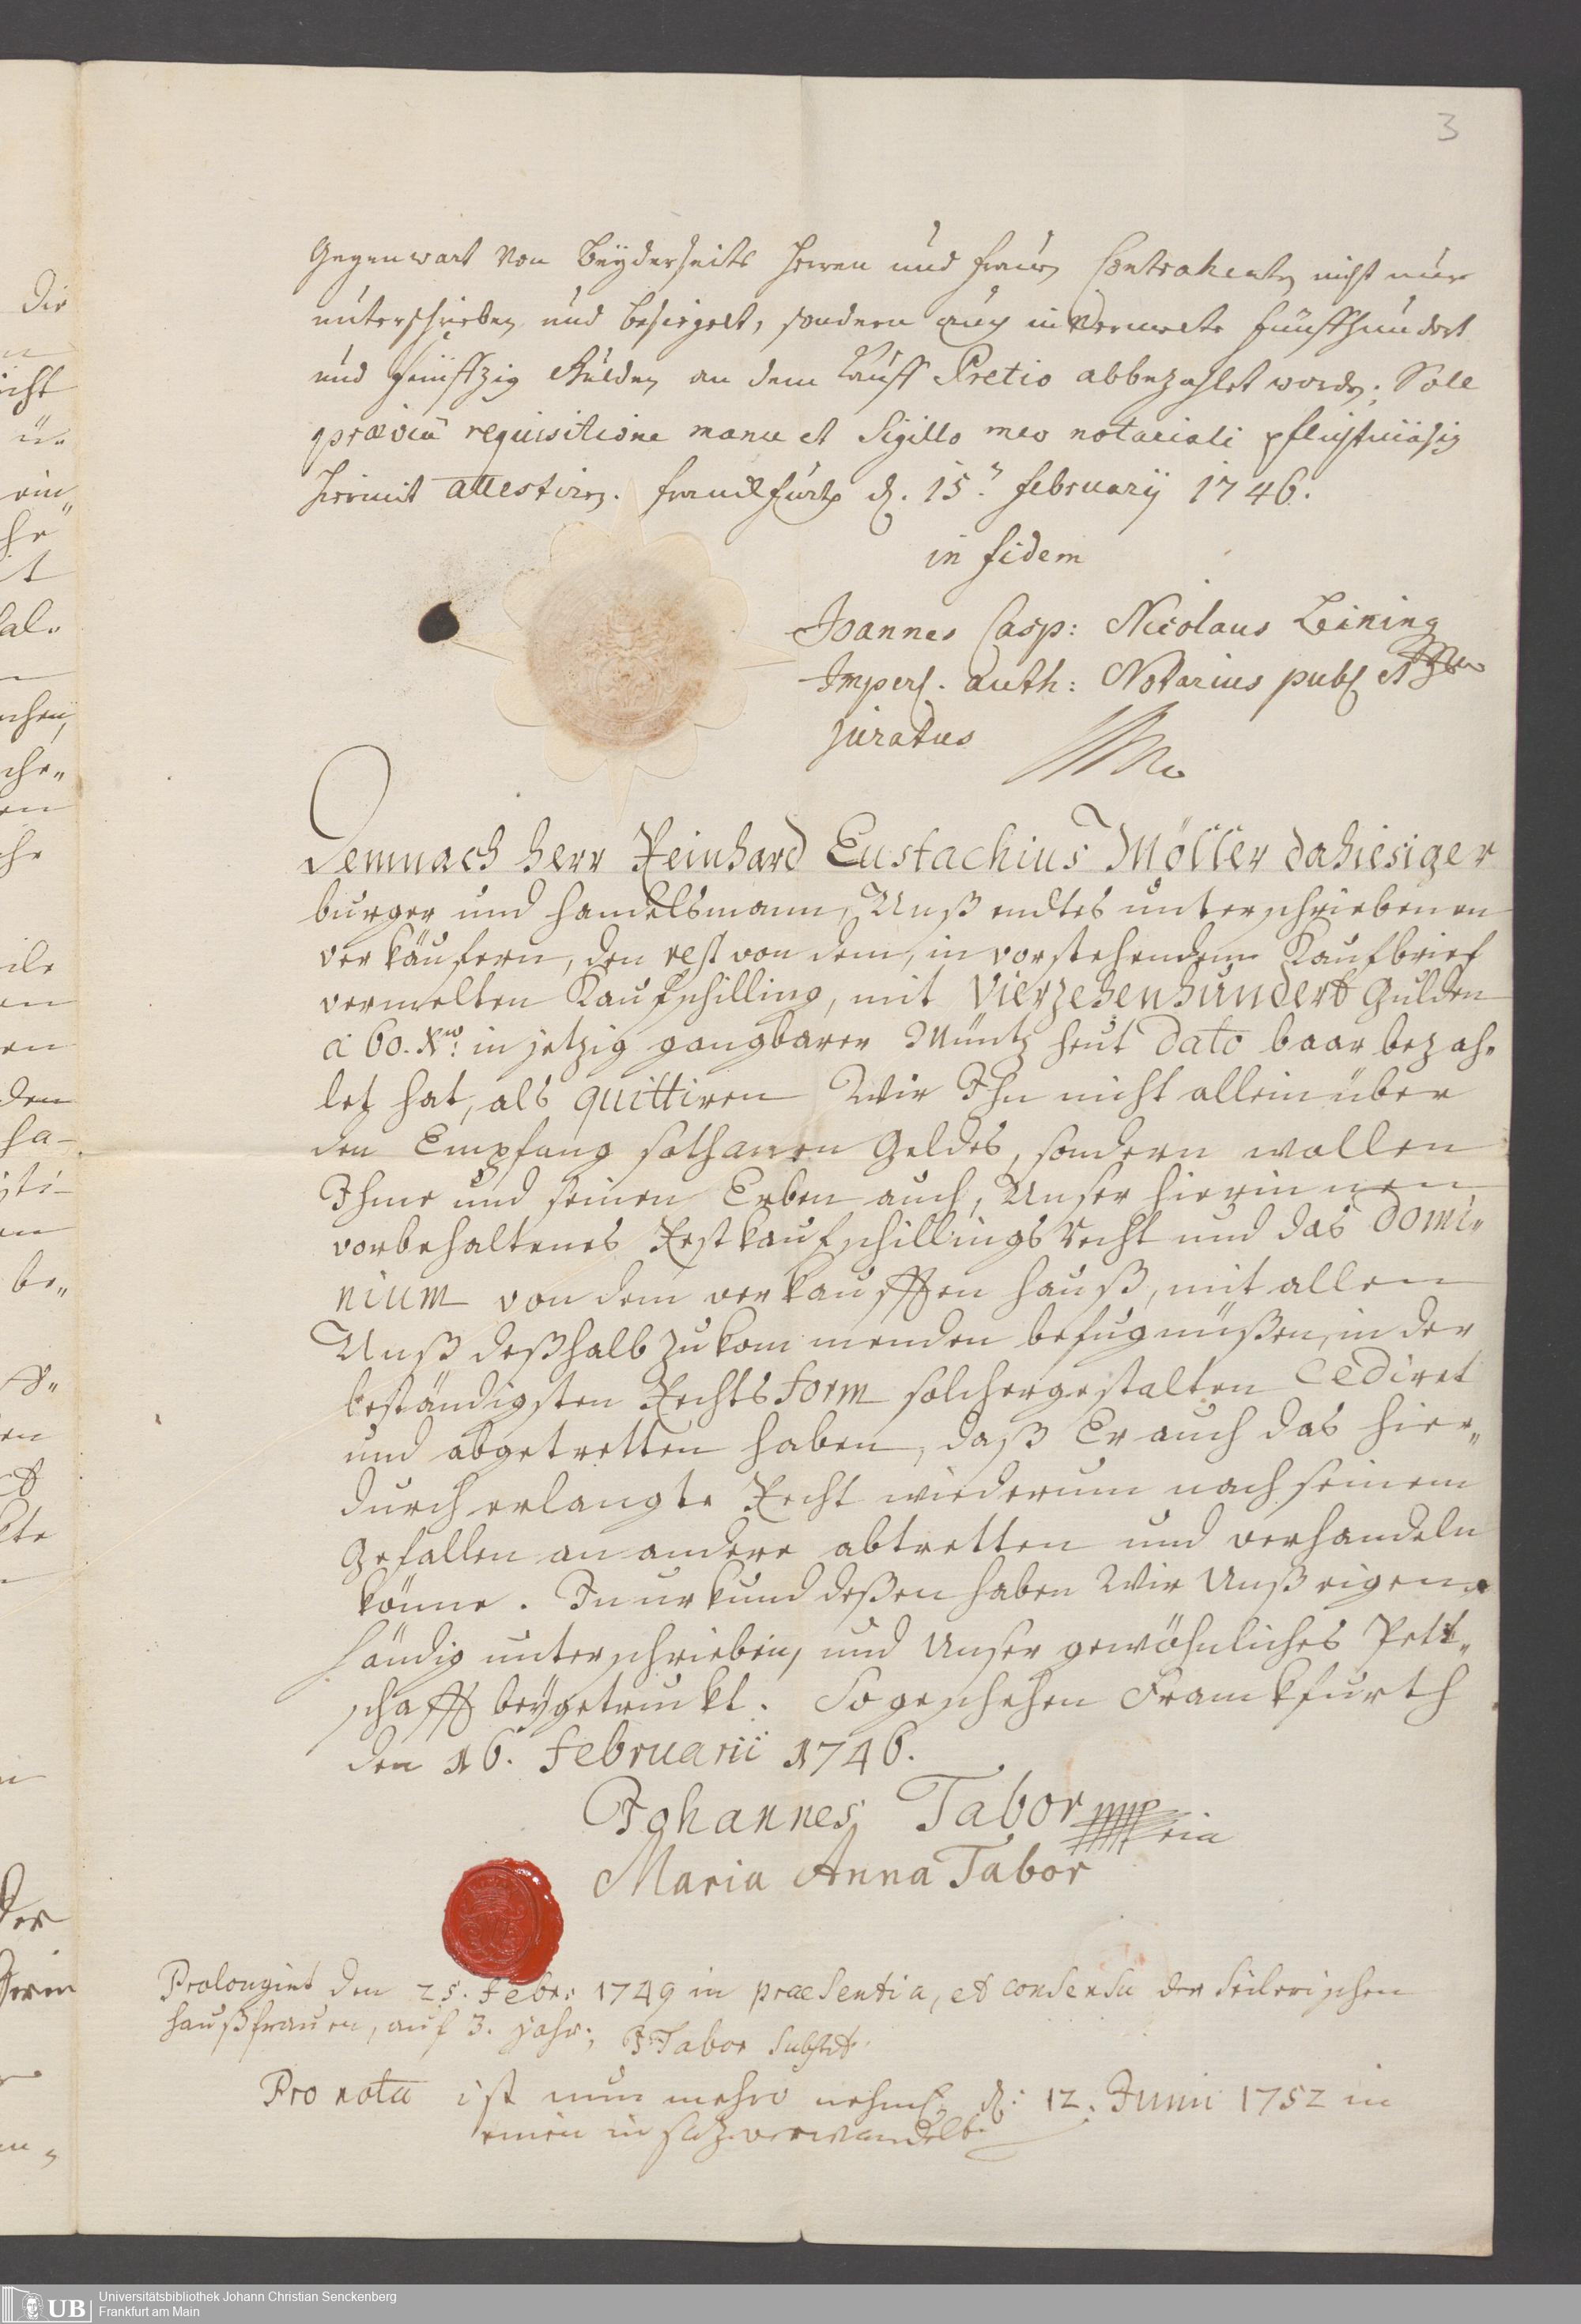 3
Gegenwart von Beÿderseits Herren und Frauen Contrahenten nicht nur
unterschrieben und besiegelt, sondern auch in vermelte fünffhundert
und fünffzig Gulden an dem Kauff Pretio abbezahlet worden; Solc
prævia requisitione manu et Sigillo meo notariali pflichtmäsig
hiermit attestiren. Franckfurth d. 15. februarÿ 1746.
in fidem
Joannes Casp: Nicolaus Leining
Imperl. auth: Notarius publ et
juratus
Demnach herr Reinhard Eustachius Möller dahiesiger
burger und handelsmann, Unß endtes unterschriebenen
verkäufern, den rest von dem, in vorstehendem Kaufbrief
vermelten Kaufschilling, mit Vierzehenhundert Gulden
a 60. Xr: in jetzig gangbarer Müntz heut dato baar bezah„
let hat, als quittiren Wir Ihn nicht allein über
den Empfang sothanen Geldes, sondern wollen
Ihme und seinen Erben auch, Unser hierinnen
vorbehaltenes Restkaufschillings recht und das domi„
nium von dem verkaufften hauß, mit allen
Unß deßhalb zukommenden befugnüßen, in der
beständigsten Rechts form solchergestalten cediret
und abgetretten haben, daß Er auch das hier„
durch erlangte Recht wiederum nach seinem
Gefallen an andere abtretten und verhandeln
könne. In urkund deßen haben Wir Unß eigen„
händig unterschrieben, und Unser gewöhnliches Pett„
schafft beygetruckt. So geschehen Franckfurth
den 16. Februarii 1746.
Johannes Tabor
Maria Anna Tabor
Prolongirt den 25. Febr: 1749 in præsentia, et consensu der Seilerischen
haußfrauen, auf 3. jahr; J Tabor Subst
Pro nota ist nun mehro nehml. d: 12. Junii 1752 in
einen in satz verwandelt.
Universitätsbibliothek Johann Christian Senckenberg
Frankfurt am Main
UB